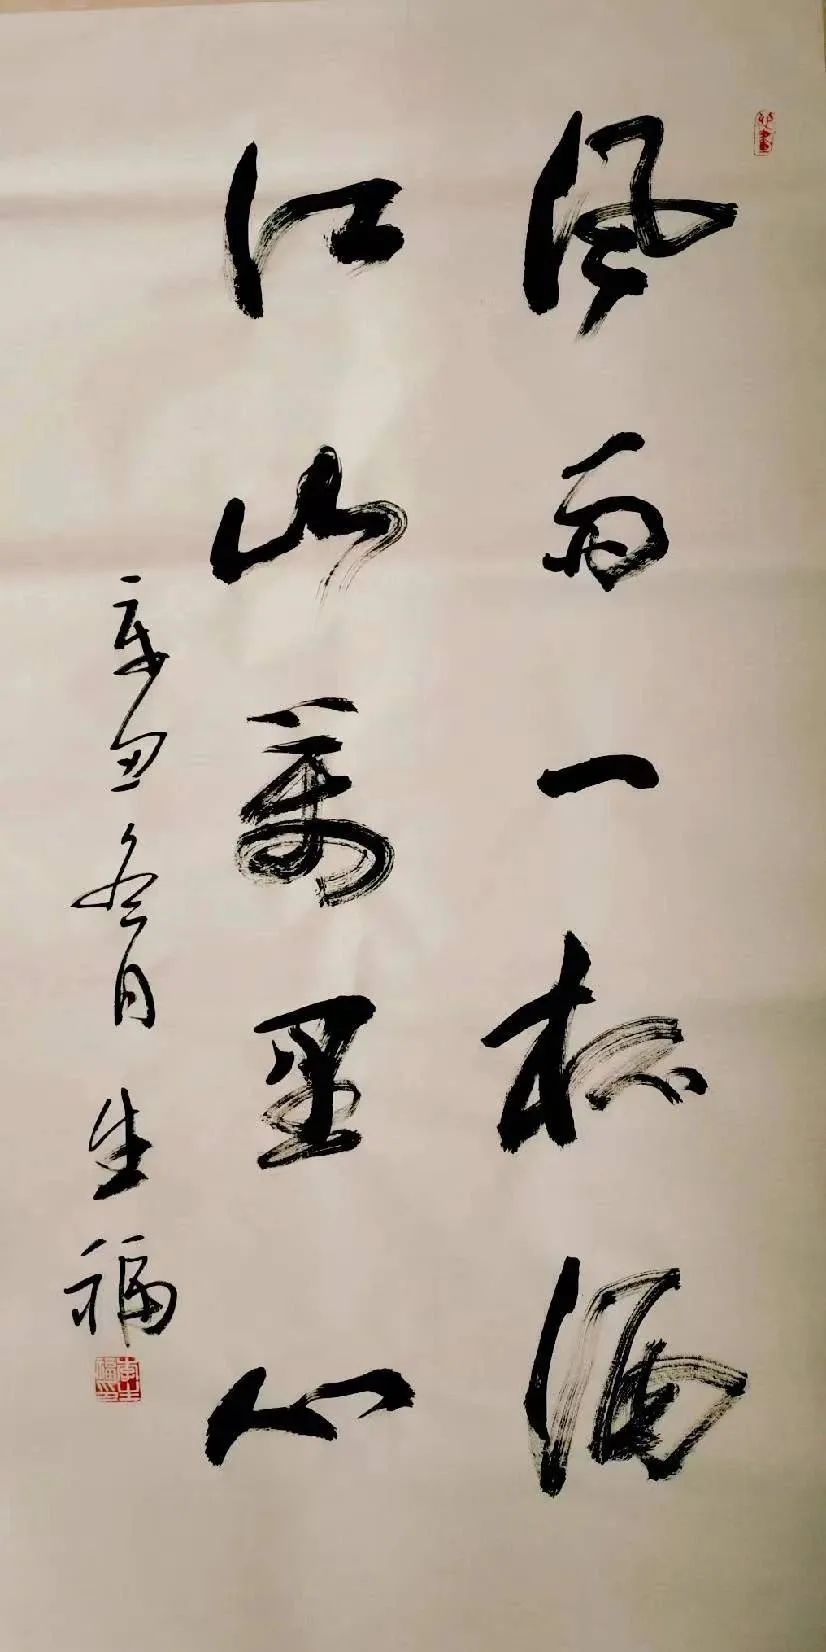 风雨一杯酒
江山万里心
辛丑冬月生福